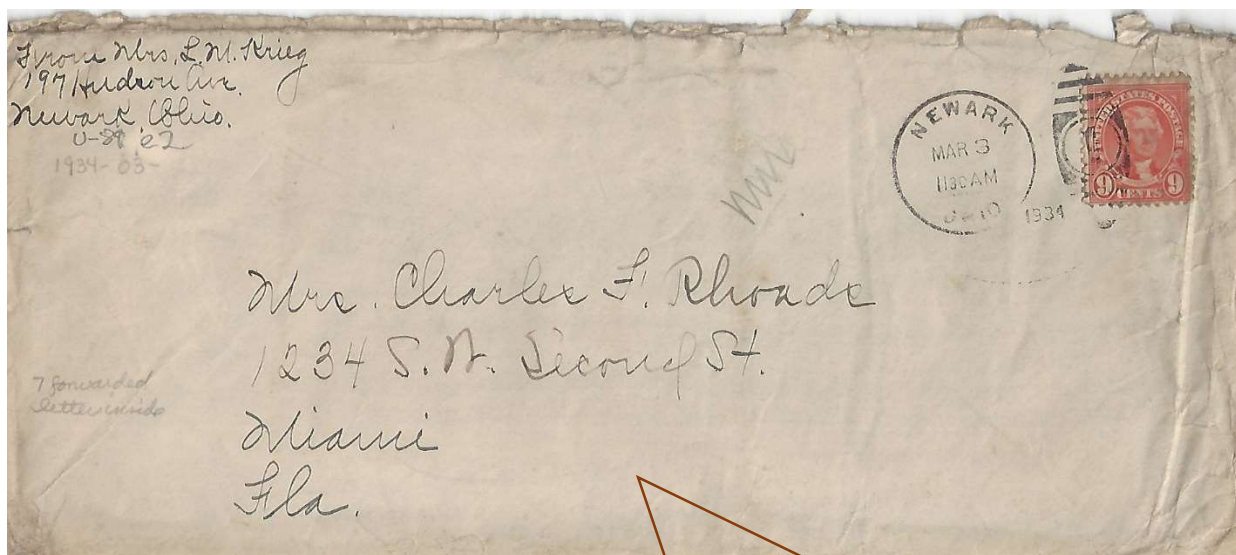 From Mrs. L. M. Krieg
197 Hudson Ave.
Newark Ohio.
1934-03-
NEWARK
MAR 3
1130AM
OHIO
1934
UNITED STATES POSTAGE
9 CENTS 9
Mrs. Charles F. Rhoads
1234 S. W. Second St.
Miami
Fla.
7 forwarded
letters inside